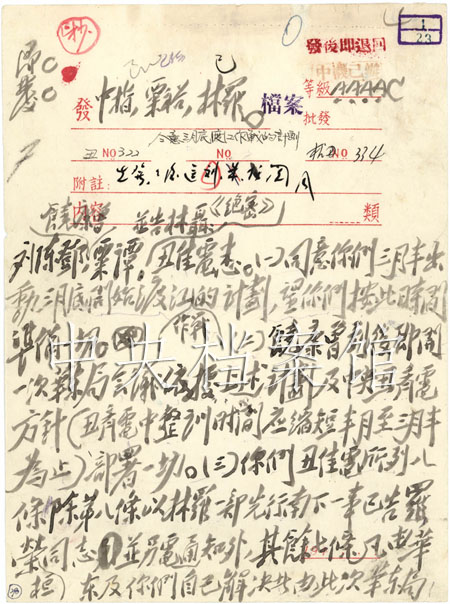 1
23
發後即退回
等級 AAAAC
批發
檔案
發
同意三月底渡江作戰的計劃
丑 NO 322
NO
334
附註：
內容
類
《絕密》
並告林羅
陳鄧粟譚，丑佳電悉。(一)同意你們三月半出
動三月底開始渡江作戰的計劃，望你們按此時間
準備一切。(二)饒康曾到後即開
一次華東局會議依據上述計劃及中央丑齊電
方針(丑齊電中整訓時間應縮短半月至三月半
為止)部署一切。(三)你們丑佳電所列八
條，除第八條以林羅一部先行南下一事已告羅
榮桓同志並另電通知外，其餘七條，已由華
東及你們自己解決
此次華東局
中央檔案館